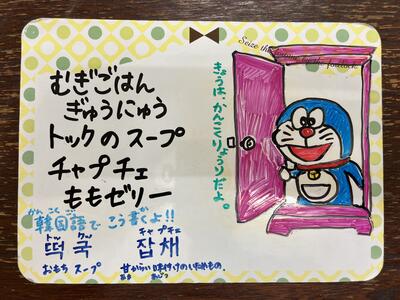 Seize the
forelock.
むぎごはん
ぎゅうにゅう
トックのスープ
チャプチェ
ももゼリー
きょうは、かんこくりょうりだよ。
かんこくご
韓国語で こう書くよ!!
トック クッ
떡 국
おもち スープ
チャプチェ
잡채
甘からい味付けのいためもの。